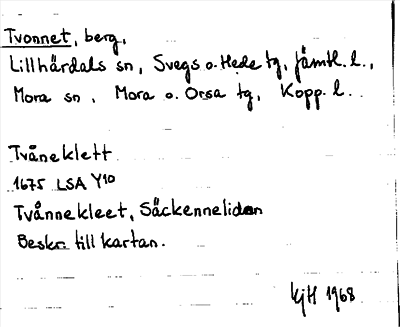 Tvonnet, berg,
Lillhärdals sn, Svegs o. Hede tg, Jämtl. l.,
Mora sn, Mora o. Orsa tg, Kopp. l.
Tvåneklett
1675 LSA Y10
Tvånnekleet, Säckennelidon
Beskr. till kartan.
KjH 1968